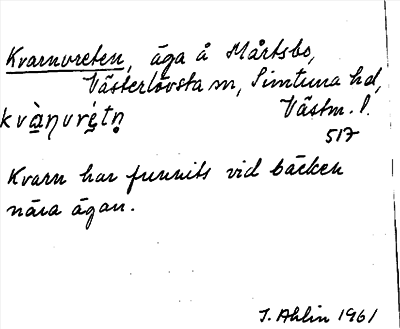 Kvarnvreten, äga å Mårtsbo,
Västerlövsta sn, Simtuna hd,
kvàṇvrétṇ Västm. l.
517
Kvarn har funnits vid bäcken
nära ägan.
J. Ahlin 1961